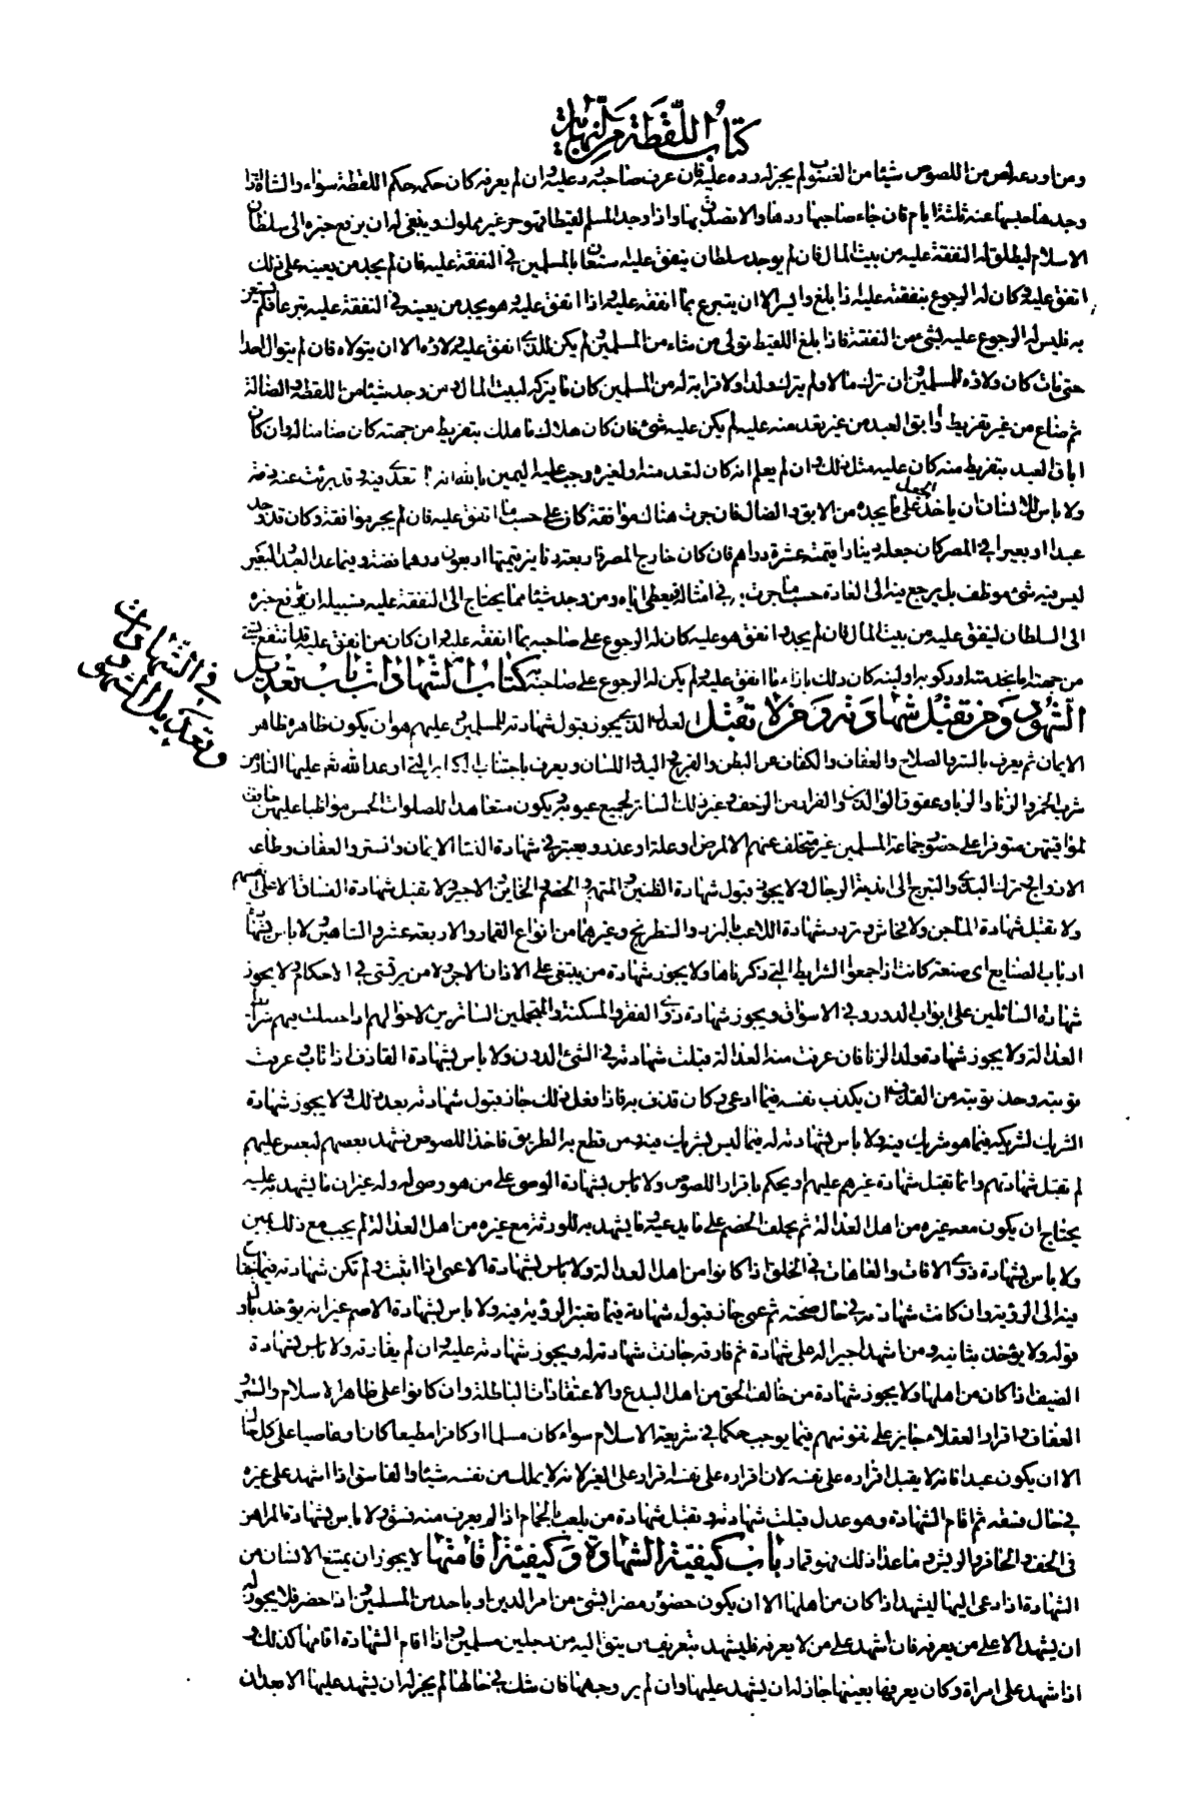 كتاب اللقطة من النهاية
ومن اودعه لص من اللصوص شيئا من الغصوب لم يجز له رده عليه فان عرف صاحبه رد عليه وان لم يعرفه كان حكمه حكم اللقطة سواء والشاة اذا
وجدها حبسها عنده ثلثة ايام فان جاء صاحبها ردها والا تصدق بها واذا وجد المسلم لقيطا فهو حر غير مملوك وينبغى له ان يرفع خبره الى سلطان
الاسلام ليطلق له النفقة عليه من بيت المال فان لم يوجد سلطان ينفق عليه استعان بالمسلمين فى النفقة عليه فان لم يجد من يعينه على ذلك
انفق عليه وكان له الرجوع بنفقته عليه اذا بلغ وايسر الا ان يتبرع بما انفقه عليه واذا انفق عليه وهو يجد من يعينه فى النفقة عليه تبرعا فلم يستعن
به فليس له الرجوع عليه بشئ من النفقة فاذا بلغ اللقيط تولى من شاء من المسلمين ولم يكن للذى انفق عليه ولاؤه الا ان يتولاه فان لم يتوال احدا
حتى مات كان ولاؤه للمسلمين وان ترك مالا ولم يترك ولدا ولا قرابة له من المسلمين كان ما تركه لبيت المال ومن وجد شيئا من اللقطة والضالة
ثم ضاع من غير تفريط او ابق العبد من غير تعد منه عليه لم يكن عليه شئ فان كان هلاك ما هلك بتفريط من جهته كان ضامنا له وان كان
اباق العبد بتفريط منه كان عليه مثل ذلك وان لم يعلم انه كان لتعد منه او لغيره وجب عليه اليمين بالله انه ما تعدى فيه وقد برئت عهدته
ولا باس للانسان ان ياخذ الجعل على ما يجده من الابق والضال فان جرت هناك موافقة كان على حسب ما اتفق عليه فان لم يجر موافقة وكان قد وجد
عبدا او بعيرا فى المصر كان جعله دينارا قيمته عشرة دراهم فان كان خارج المصر فاربعة دنانير قيمتها اربعون درهما فضة وفيما عدا العبد والبعير
ليس فيه شئ موظف بل يرجع فيه الى العادة حسب ما جرت به فى امثاله فيعطى اياه ومن وجد شيئا مما يحتاج الى النفقة عليه فسبيله ان يرفع خبره
الى السلطان لينفق عليه من بيت المال فان لم يجد وانفق هو عليه كان له الرجوع على صاحبه بما انفقه عليه وان كان من انفق عليه قد انتفع بشئ
من جهته اما بخدمته او ركوبه او لبنه كان ذلك بازاء ما انفق عليه ولم يكن له الرجوع على صاحبه كتاب الشهادات باب تعديل
الشهود ومن تقبل شهادته ومن لا تقبل العدل الذى يجوز قبول شهادته للمسلمين وعليهم هو ان يكون ظاهره ظاهر
الايمان ثم يعرف بالستر والصلاح والعفاف والكف عن البطن والفرج واليد واللسان ويعرف باجتناب الكبائر التى اوعد الله تع عليها النار من
شرب الخمر والزنا والربا وعقوق الوالدين والفرار من الزحف وغير ذلك الساتر لجميع عيوبه ويكون متعاهدا للصلوات الخمس مواظبا عليهن حافظا
لمواقيتهن متوفرا على حضور جماعة المسلمين غير متخلف عنهم الا لمرض او علة او عذر ويعتبر فى شهادة النساء الايمان والستر والعفاف وطاعة
الازواج وترك البذاء والتبرج الى اندية الرجال ولا يجوز قبول شهادة الظنين والمتهم والخصم والخاين والاجير ولا تقبل شهادة الفساق الا على انفسهم
ولا تقبل شهادة الماجن ولا فحاش وترد شهادة اللاعب بالنرد والشطرنج وغيرهما من انواع القمار والاربعة عشر والشاهين ولا باس بشهادة
ارباب الصنايع اى صنعة كانت اذا جمعوا الشرايط التى ذكرناها ولا يجوز شهادة من يبتغى على الاذان الاجر ولا من يرتشى فى الاحكام ولا يجوز
شهادة السائلين على ابواب الدور وفى الاسواق ويجوز شهادة ذوى الفقر والمسكنة والمتجملين الساترين لاحوالهم اذا حصلت فيهم شرايط
العدالة ولا يجوز شهادة ولد الزنا فان عرفت منه العدالة قبلت شهادته فى الشئ الدون ولا باس بشهادة القاذف اذا تاب وعرفت
توبته وحد توبته من القذف ان يكذب نفسه فيما ادعى وكان قذف به فاذا فعل ذلك جاز قبول شهادته بعد ذلك ولا يجوز شهادة
الشريك لشريكه فيما هو شريك فيه ولا باس بشهادته له فيما ليس بشريك فيه ومن قطع به الطريق فاخذ اللصوص فشهد بعضهم لبعض عليهم
لم تقبل شهادتهم وانما تقبل شهادة غيرهم عليهم او يحكم باقرار اللصوص ولا باس بشهادة الوصى على من هو وصى له وله غير ان ما يشهد به عليه
يحتاج ان يكون معه غيره من اهل العدالة ثم يحلف الخصم على ما يدعيه وما يشهد به للورثة مع غيره من اهل العدالة لم يجب مع ذلك يمين
ولا باس بشهادة ذوى الافات والعاهات فى الخلق اذا كانوا من اهل العدالة ولا باس بشهادة الاعمى اذا اثبت ولم تكن شهادته فيما يحتاج
فيه الى الرؤية وان كانت شهادته فى حال صحته ثم عمى جاز قبول شهادته فيما يعتبر الرؤية فيه ولا باس بشهادة الاصم غير انه يؤخذ باول
قوله ولا يؤخذ بثانيه ومن اشهد اجيرا له على شهادة ثم فارقه جازت شهادته له ويجوز شهادته عليه وان لم يفارقه ولا باس بشهادة
الضيف اذا كان من اهلها ولا يجوز شهادة من خالف الحق من اهل البدع والاعتقادات الباطلة وان كانوا على ظاهر الاسلام والستر و
العفاف واقرار العقلاء جايز على نفوسهم فيما يوجب حكما فى شريعة الاسلام سواء كان مسلما او كافرا مطيعا كان او عاصيا على كل حال
الا ان يكون عبدا فانه لا يقبل اقراره على نفسه لان اقراره على نفسه اقرار على الغير لانه لا يملك من نفسه شيئا والفاسق اذا اشهد على غيره
فى حال فسقه ثم اقام الشهادة وهو عدل قبلت شهادته وتقبل شهادة من يلعب بالحمام اذا لم يعرف منه فسق ولا باس بشهادة المراهن
فى الخف والحافر والريش وما عدا ذلك فهو قمار باب كيفية الشهادة وكيفية اقامتها لا يجوز ان يمتنع الانسان من
الشهادة اذا دعى اليها ليشهد اذا كان من اهلها الا ان يكون حضوره مضرا بشئ من امر الدين او باحد من المسلمين واذا حضر فلا يجوز له
ان يشهد الا على من يعرفه فان اشهد على من لا يعرفه فليشهد بتعريف من يثق اليه من رجلين مسلمين واذا اقام الشهادة اقامها كذلك و
اذا شهد على امراة وكان يعرفها بعينها جاز له ان يشهد عليها وان لم ير وجهها فان شك فى حالها لم يجز له ان يشهد عليها الا بعد ان
فى الشهادات
وتعديل الشهود